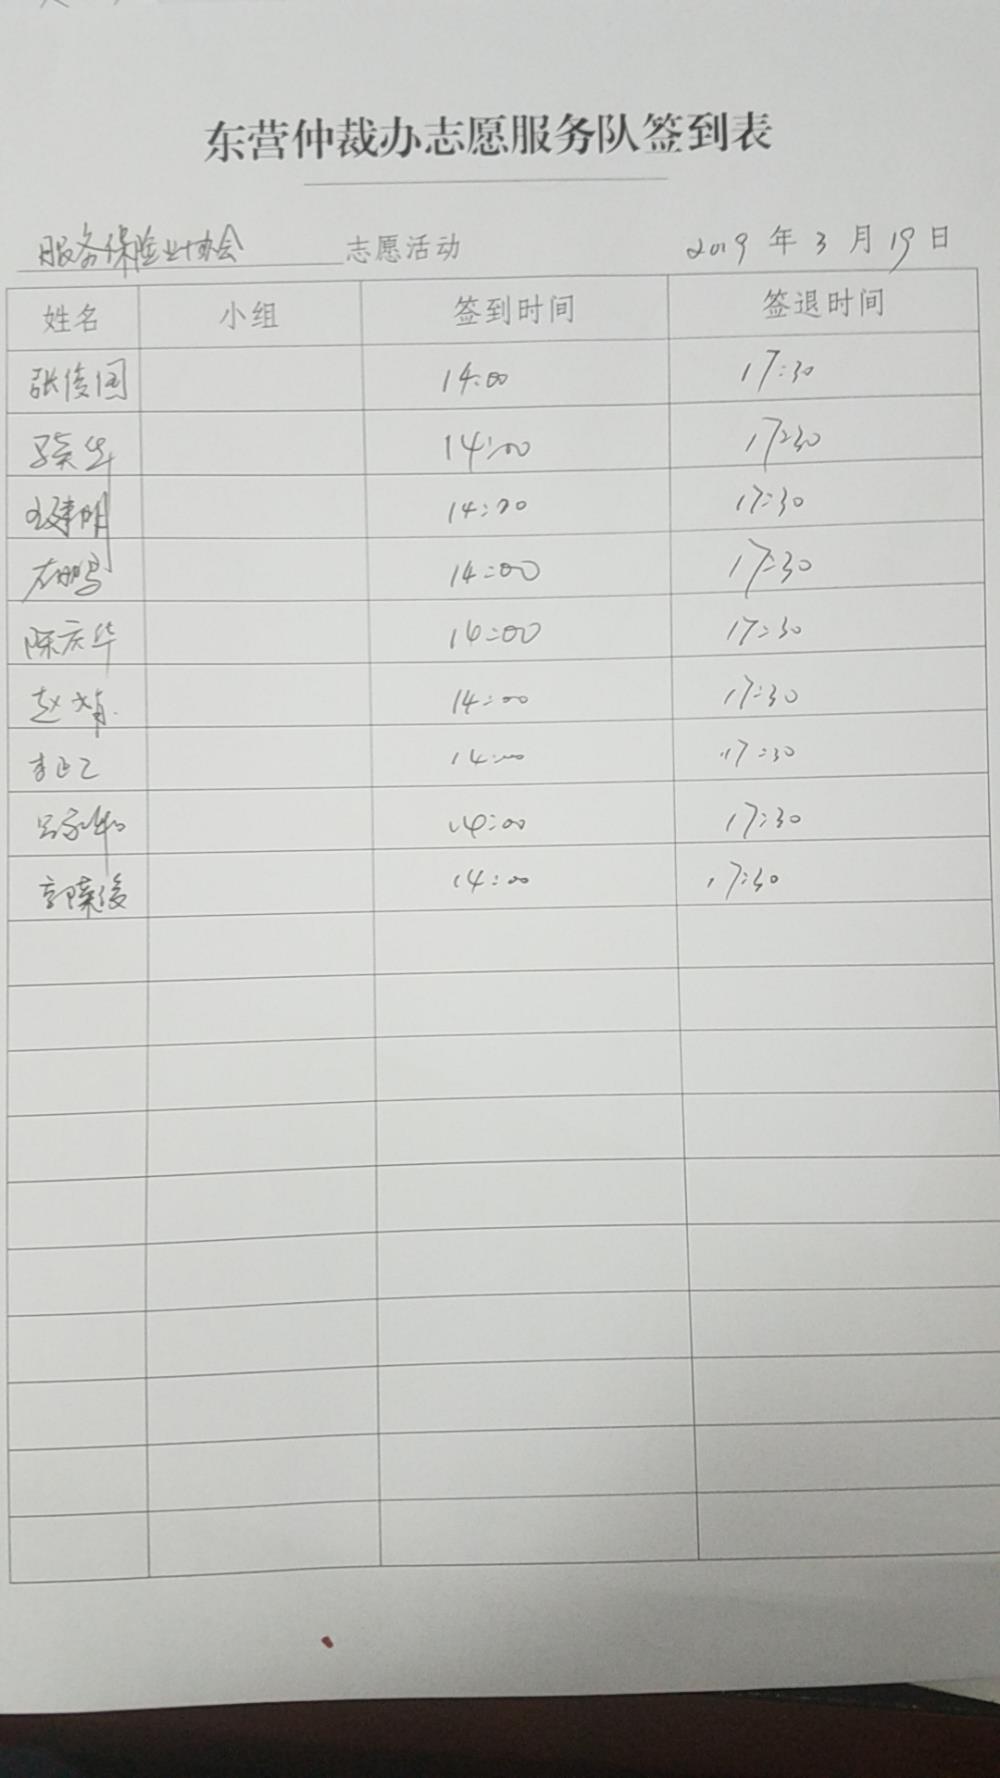 东营仲裁办志愿服务队签到表
服务保险业协会 志愿活动 2019 年 3 月 19 日
姓名 小组 签到时间 签退时间
张俊国 14:00 17:30
14:00 17:30
14:00 17:30
14:00 17:30
陈庆华 14:00 17:30
14:00 17:30
李正乙 14:00 17:30
14:00 17:30
14:00 17:30